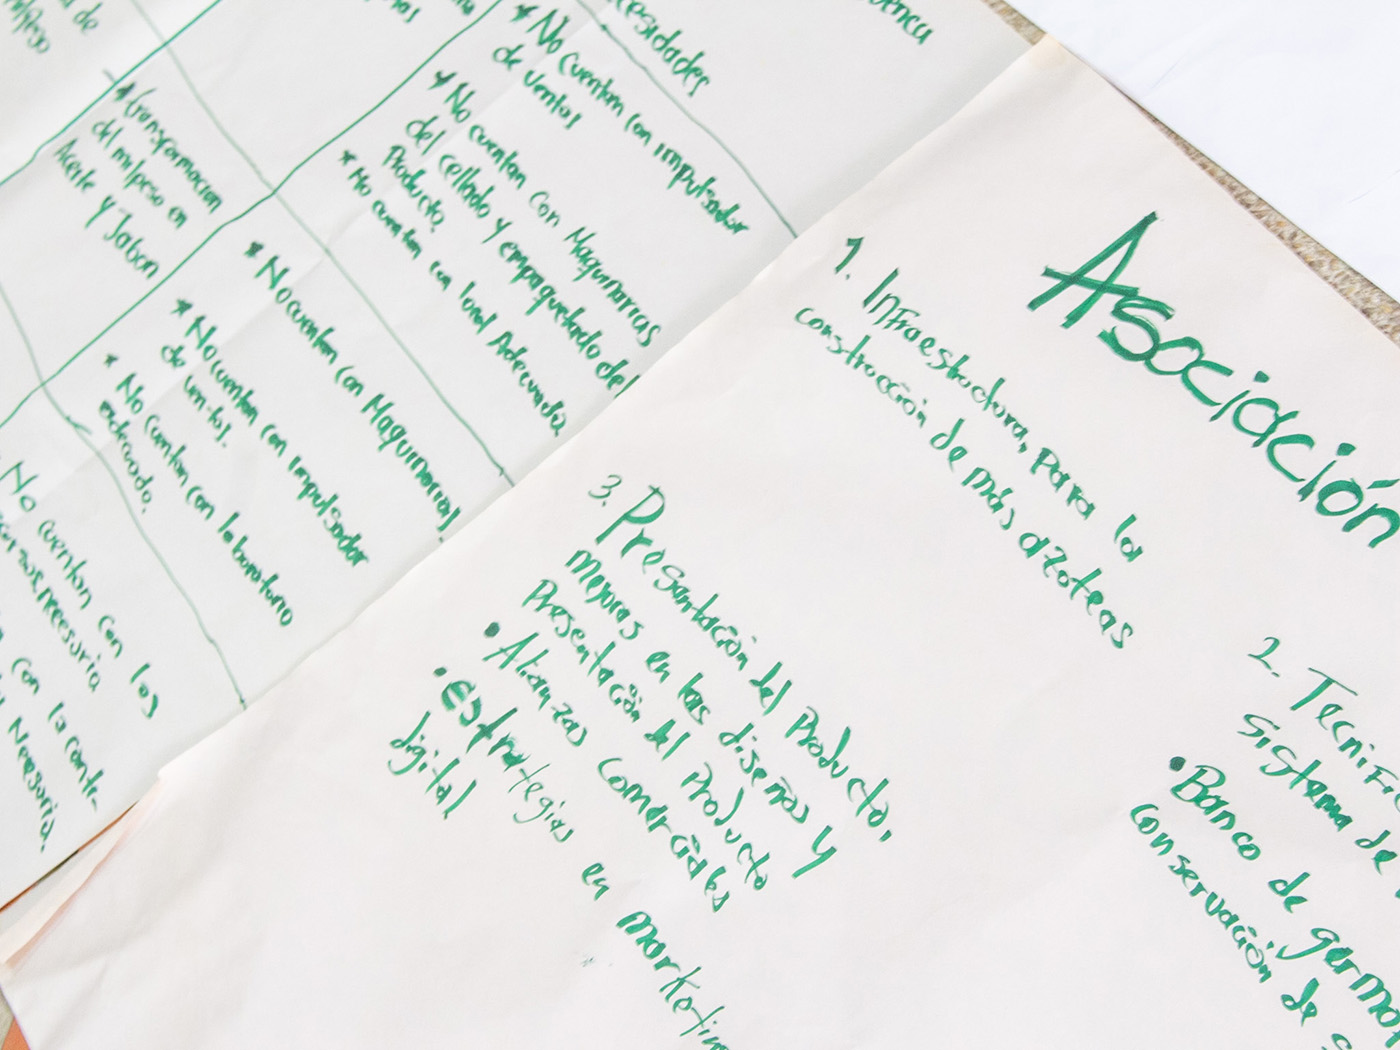 Asociación
1. Infraestructura, para la
construcción de más azoteas
2. Tecnif
sistema de
• Banco de germo
conservación de s
3. Presentación del Producto,
mejoras en los diseños y
Presentación del Producto
• Alianzas comerciales
• Estrategias en marketin
digital
cesidades
* No cuentan con impulsador
de ventas
* No cuentan con Maquinarias
del cellado y empaquetado del
Producto.
* No cuentan con local Adecuada
* Transformacion
del milpeso en
Aceite y Jabon
* No cuentan con Maquinarias.
* No cuentan con impulsador
de ventas.
* No cuentan con laboratorio
adecuado.
No cuentan con los
necesaria
con la
Necesaria.